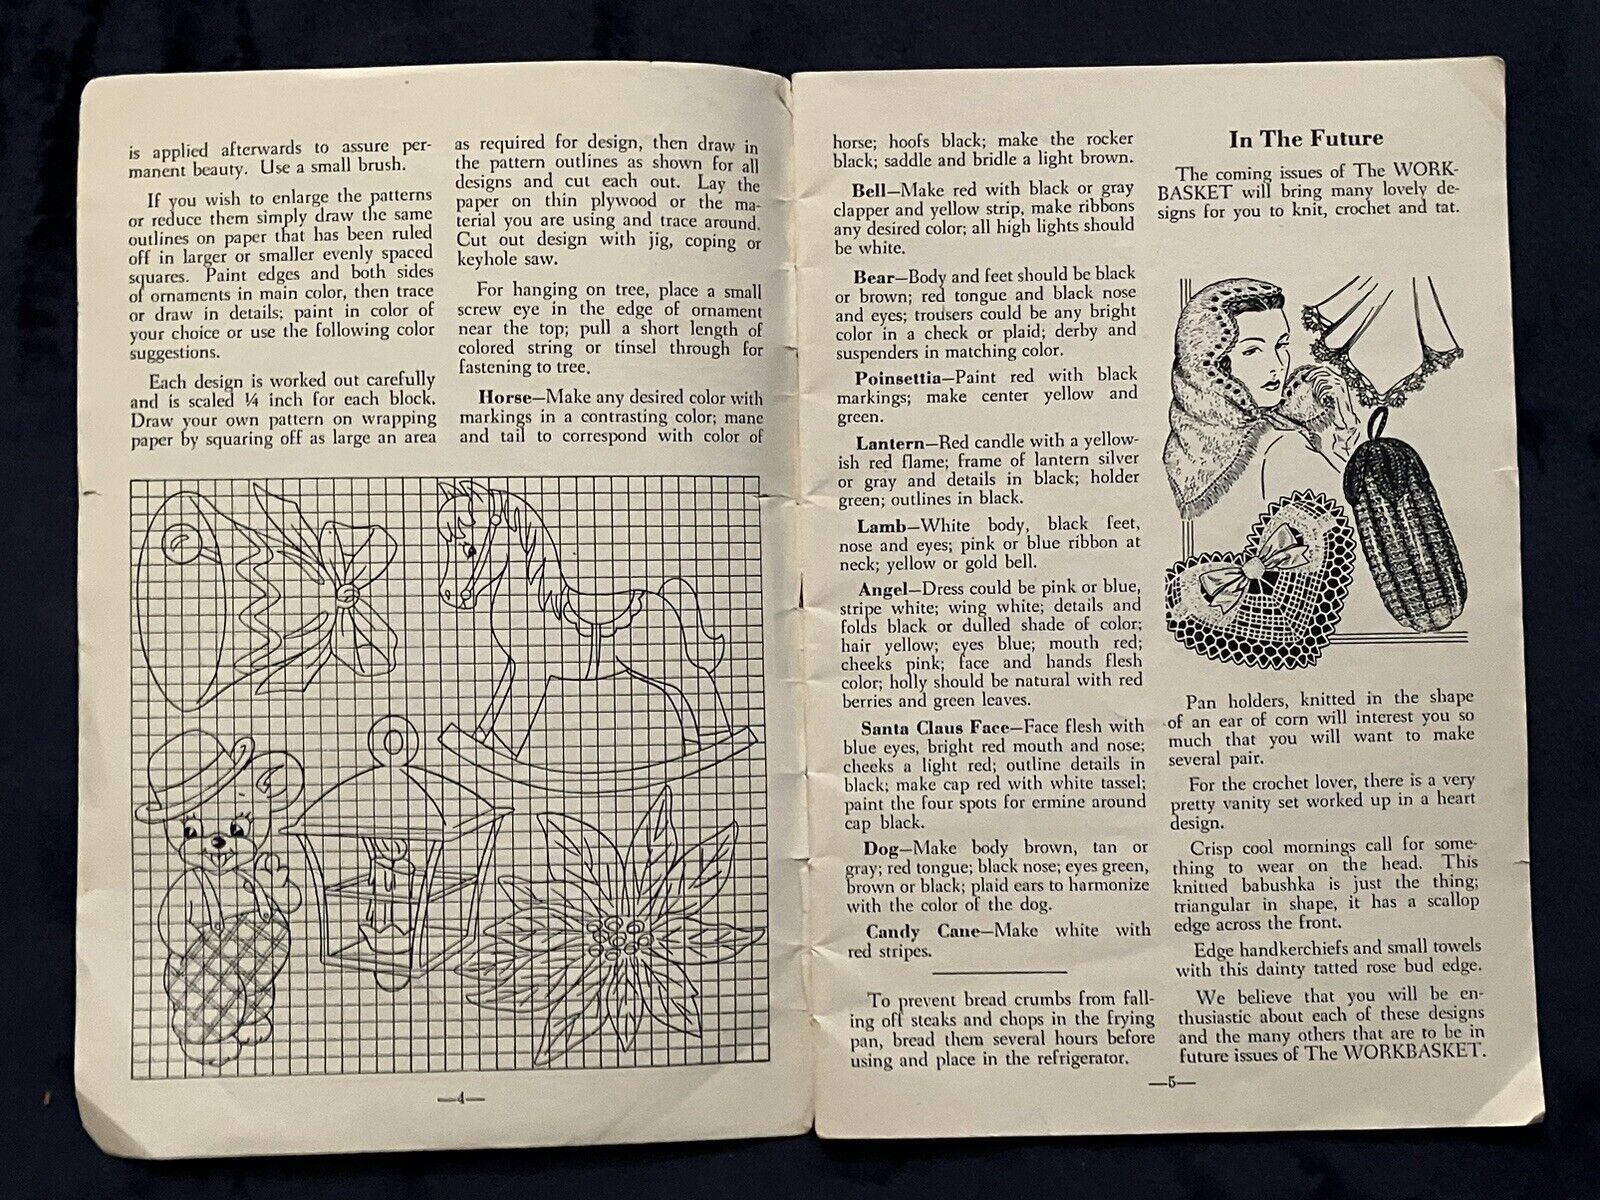 is applied afterwards to assure per-
manent beauty. Use a small brush.
If you wish to enlarge the patterns
or reduce them simply draw the same
outlines on paper that has been ruled
off in larger or smaller evenly spaced
squares. Paint edges and both sides
of ornaments in main color, then trace
or draw in details; paint in color of
your choice or use the following color
suggestions.
Each design is worked out carefully
and is scaled ¼ inch for each block.
Draw your own pattern on wrapping
paper by squaring off as large an area
as required for design, then draw in
the pattern outlines as shown for all
designs and cut each out. Lay the
paper on thin plywood or the ma-
terial you are using and trace around.
Cut out design with jig, coping or
keyhole saw.
For hanging on tree, place a small
screw eye in the edge of ornament
near the top; pull a short length of
colored string or tinsel through for
fastening to tree.
Horse—Make any desired color with
markings in a contrasting color; mane
and tail to correspond with color of
—4—
horse; hoofs black; make the rocker
black; saddle and bridle a light brown.
Bell—Make red with black or gray
clapper and yellow strip, make ribbons
any desired color; all high lights should
be white.
Bear—Body and feet should be black
or brown; red tongue and black nose
and eyes; trousers could be any bright
color in a check or plaid; derby and
suspenders in matching color.
Poinsettia—Paint red with black
markings; make center yellow and
green.
Lantern—Red candle with a yellow-
ish red flame; frame of lantern silver
or gray and details in black; holder
green; outlines in black.
Lamb—White body, black feet,
nose and eyes; pink or blue ribbon at
neck; yellow or gold bell.
Angel—Dress could be pink or blue,
stripe white; wing white; details and
folds black or dulled shade of color;
hair yellow; eyes blue; mouth red;
cheeks pink; face and hands flesh
color; holly should be natural with red
berries and green leaves.
Santa Claus Face—Face flesh with
blue eyes, bright red mouth and nose;
cheeks a light red; outline details in
black; make cap red with white tassel;
paint the four spots for ermine around
cap black.
Dog—Make body brown, tan or
gray; red tongue; black nose; eyes green,
brown or black; plaid ears to harmonize
with the color of the dog.
Candy Cane—Make white with
red stripes.
To prevent bread crumbs from fall-
ing off steaks and chops in the frying
pan, bread them several hours before
using and place in the refrigerator.
In The Future
The coming issues of The WORK-
BASKET will bring many lovely de-
signs for you to knit, crochet and tat.
Pan holders, knitted in the shape
of an ear of corn will interest you so
much that you will want to make
several pair.
For the crochet lover, there is a very
pretty vanity set worked up in a heart
design.
Crisp cool mornings call for some-
thing to wear on the head. This
knitted babushka is just the thing;
triangular in shape, it has a scallop
edge across the front.
Edge handkerchiefs and small towels
with this dainty tatted rose bud edge.
We believe that you will be en-
thusiastic about each of these designs
and the many others that are to be in
future issues of The WORKBASKET.
—5—